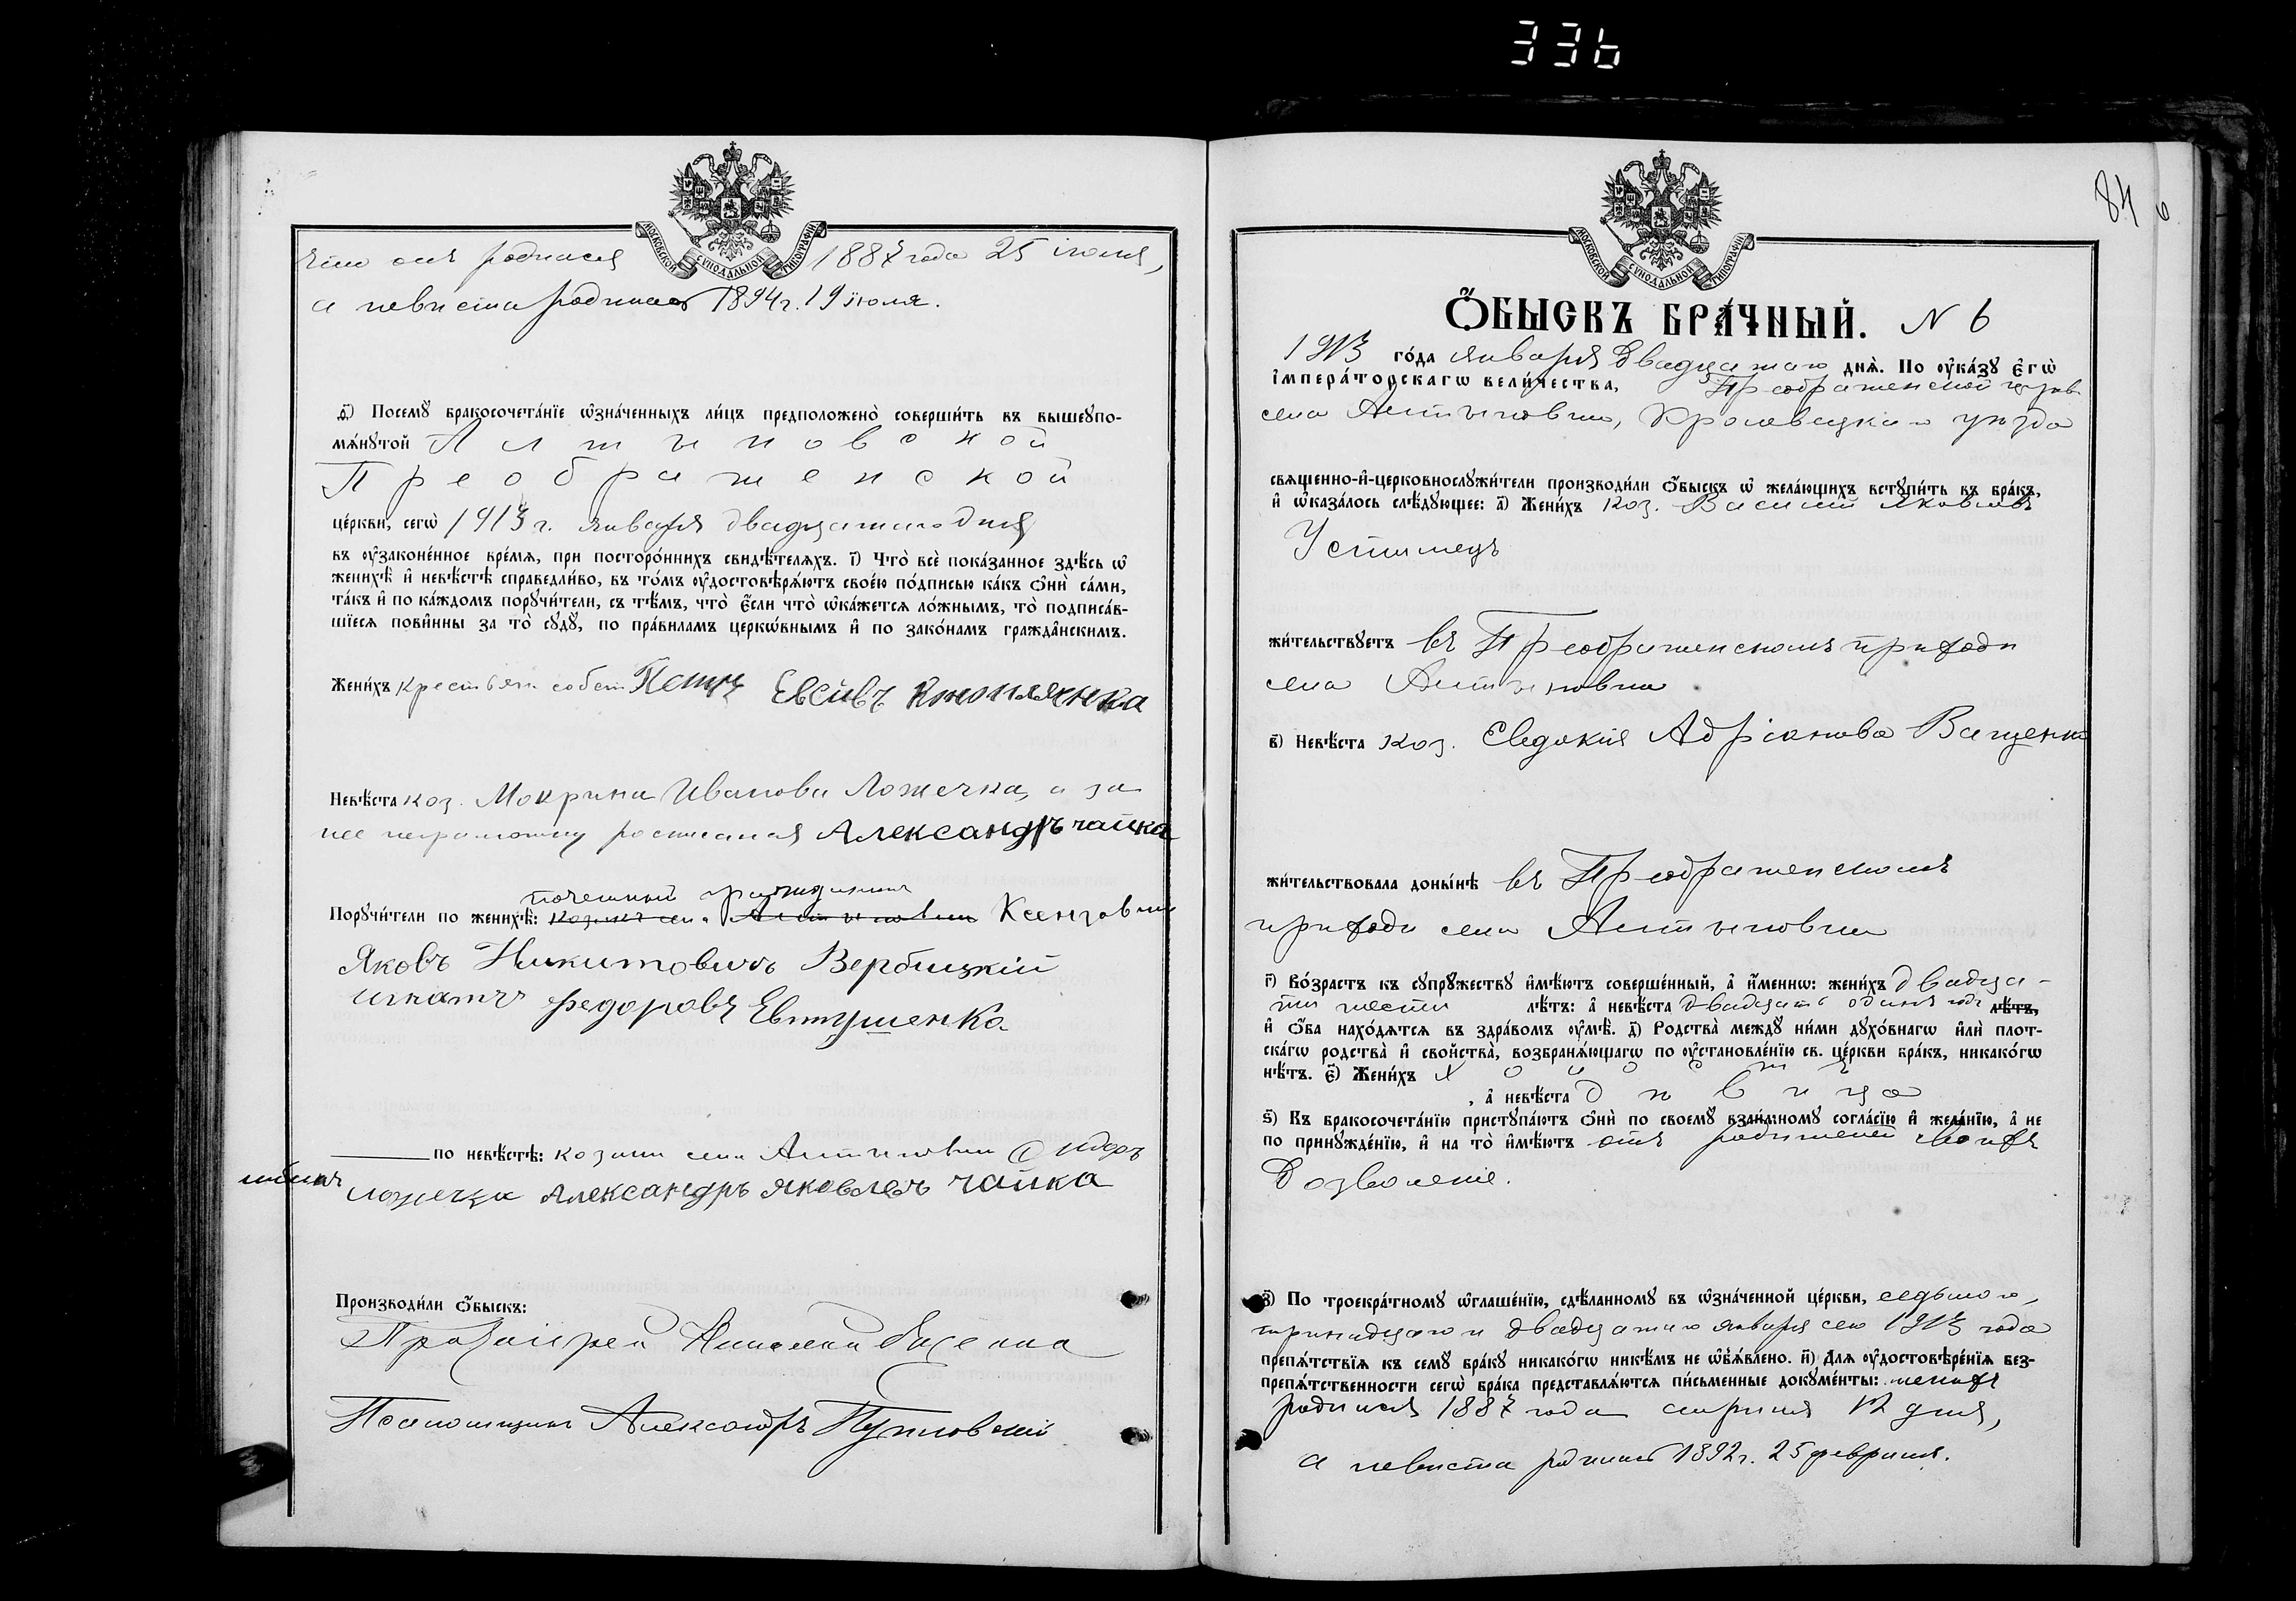 336
МОСКОВСКОЙ СѴНОДАЛЬНОЙ ТИПОГРАФІИ
что онъ родился 1887 года 25 іюня,
а невѣста родилась 1894 г. 19 іюля.
ѳ҃) Посемꙋ̀ бракосочета́нїе ѡ҆зна́ченныхъ ли́цъ предположено̀ соверши́ть въ вышеꙋпо-
мѧ́нꙋтой Алтыновской
Преображенской
це́ркви, сегѡ̀ 1913 г. января двадцатаго дня
въ ᲂу҆законе́нное вре́мѧ, при посторо́ннихъ свидѣ́телѧхъ. і҃) Что̀ всѐ пока́занное здѣ́сь ѡ҆
женихѣ̀ и҆ невѣ́стѣ справедли́во, въ то́мъ ᲂу҆достовѣрѧ́ютъ свое́ю по́дписью ка́къ ѻ҆нѝ са́ми,
та́къ и҆ по ка́ждомъ порꙋчи́тели, съ тѣ́мъ, что̀ є҆́сли что̀ ѡ҆ка́жетсѧ ло́жнымъ, то̀ подписа́в-
шїесѧ пови́нны за то̀ сꙋдꙋ̀, по пра́виламъ церкѡ́внымъ и҆ по зако́намъ гражда́нскимъ.
Жени́хъ крестьян. собст. Петръ Евсіевъ
Невѣ́ста коз. Мокрина Иванова Ложечка, а за
нее неграмотну росписался Александръ чайка
почетный гражданинъ
Порꙋчи́тели по женихѣ̀: козакъ села Алтыновки
Яковъ Никитовичъ Вербицкій
игнатъ федоровъ Евтушенко
по невѣ́стѣ: козаки села Алтыновки Сидоръ
ложечка Александръ яковлевъ чайка
Производи́ли ѻ҆́быскъ:
Протоіерей Николай
Псаломщикъ Александръ
84 6
МОСКОВСКОЙ СѴНОДАЛЬНОЙ ТИПОГРАФІИ
Ѻ҆́БЫСКЪ БРА́ЧНЫЙ. N 6
1913 го́да января двадцатаго днѧ̀. По ᲂу҆ка́зꙋ Є҆гѡ̀
і҆мпера́торскагѡ вели́чества, Преображенской церкв.
села Алтыновки, Кролевецкаго уѣзда
свѧщенно-и҆-церковнослꙋжи́тели производи́ли ѻ҆́быскъ ѡ҆ жела́ющихъ встꙋпи́ть въ бра́къ,
и҆ ѡ҆каза́лось слѣ́дꙋющее: а҃) Жени́хъ коз. Василій Яковлевъ
Устимецъ
жи́тельствꙋетъ въ Преображенскомъ приходѣ
села Алтыновки
в҃) Невѣ́ста коз. Евдокія Адріанова Ващенко
жи́тельствовала доны́нѣ въ Преображенскомъ
приходѣ села Алтыновки
г҃) Во́зрастъ къ сꙋпрꙋ́жествꙋ и҆мѣ́ютъ соверше́нный, а҆ и҆́менно: жени́хъ двадца-
ти шести лѣ́тъ: а҆ невѣ́ста двадцать одинъ годъ лѣ́тъ,
и҆ ѻ҆́ба нахо́дѧтсѧ въ здра́вомъ ᲂу҆мѣ̀. д҃) Родства̀ междꙋ ни́ми дꙋхо́внагѡ и҆лѝ плот-
ска́гѡ родства̀ и҆ сво́йства̀, возбранѧ́ющагѡ по ᲂу҆становле́нїю св. це́ркви бра́къ, никако́гѡ
нѣ́тъ. є҃) Жени́хъ холостъ
, а҆ невѣ́ста дѣвица
ѕ҃) Къ бракосочета́нїю пристꙋпа́ютъ ѻ҆нѝ по своемꙋ̀ взаи́мномꙋ согла́сїю и҆ жела́нїю, а҆ не
по принꙋжде́нїю, и҆ на то̀ и҆мѣ́ютъ отъ родителей своихъ
дозволеніе.
з҃) По троекра́тномꙋ ѡ҆глаше́нїю, сдѣ́ланномꙋ въ ѡ҆зна́ченной це́ркви, седьмого,
тринадцаго и двадцатаго января сего 1913 года
препѧ́тствїѧ къ семꙋ̀ бра́кꙋ никако́гѡ никѣ́мъ не ѡ҆б̾ѧ́влено. и҃) Для ᲂу҆достовѣре́нїѧ без-
препѧ́тственности сегѡ̀ бра́ка представлѧ́ютсѧ пи́сьменные докꙋме́нты: женихъ
родился 1887 года апрѣля 12 дня,
а невѣста родилась 1892 г. 25 февраля.